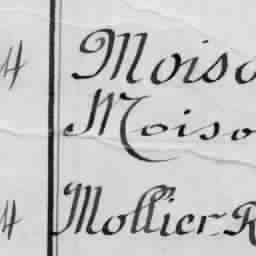 4 Moiso
Moiso
4 Mollier R